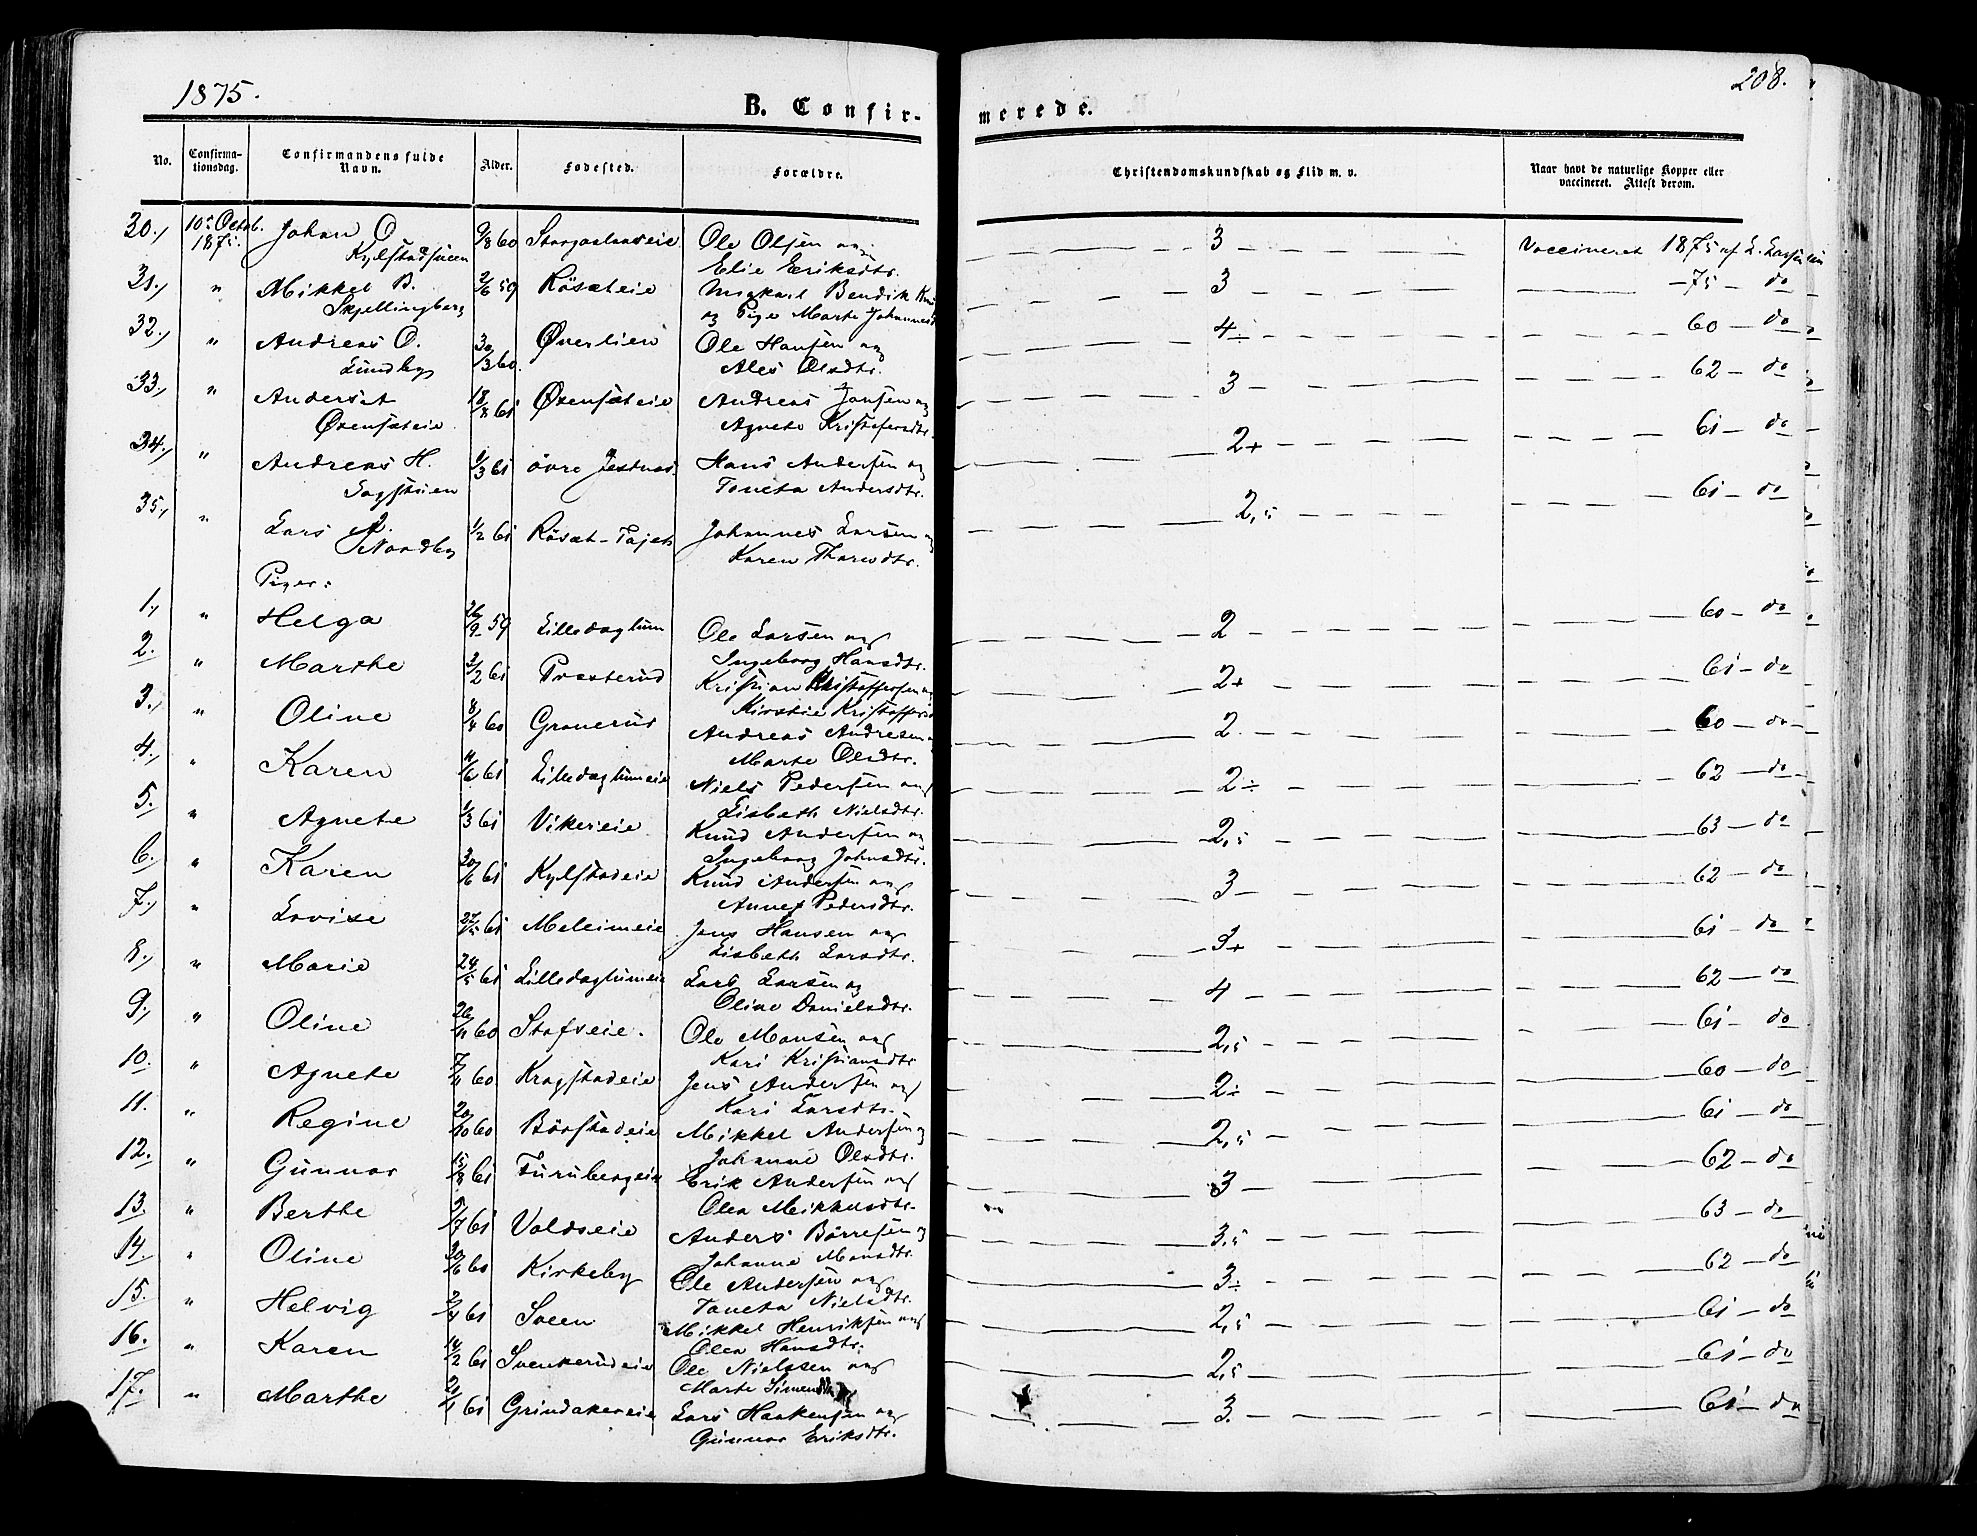 1875.
208.
B. Confirmerede.
No. Confirmationsdag. Confirmandens fulde Navn. Alder. Fødested. Forældre. Christendomskundskab og Flid m. v. Naar havt de naturlige Kopper eller vaccineret. Attest derom.
30., 10de Octob. 1875. Johan O. 9/8 60 Ole Olsen og 3 Vaccineret 1875 af L. Larsen
Kylstadsveen Elie Eriksdtr.
31., " Mikkel B. 2/6 59 Røsæteie Ungkarl Bendik 3 — 75 — do
Skjellingberg og Pige Marte Johannesd
32., " Andreas O. 30/3 60. Øverlien Ole Hansen og 4÷ 60 — do
Lundby Ales Olsdtr.
33., " Øxensæteie Andreas Jonsen og 3 62 — do
Øxensæteie Agnete Kristofersdtr.
34., " Andreas H. 1/3 61 øvre Jestnæs Hans Andersen og 2+ 61 — do
Sagstuen Toneta Andersdtr.
35., " Lars J. 1/2 61 Johannes Larsen og 2,5 61 — do
Nordby Karen
Piger:
1., " Helga 26/9 59 Lilledaglum Ole Larsen og 2 60 — do
Ingeborg Hansdtr.
2. " Marthe 3/2 61 Præsterud Kristian Kristoffersen og 2+ 61 — do
Kirstie Kristoffersd
3., " Oline 8/4 60 Granerud Andreas Andresen 2. 60 — do
Marte Olsdtr.
4., " Karen 11/6 61 Lilledaglumeie Niels Pedersen og 2÷ 62 — do
Lisbeth Nielsdtr.
5. " Agnete 1/3 61 Vikereie Knud Andersen og 2,5 63 — do
Ingeborg Johnsdtr.
6., " Karen 30/6 61 Kylstadeie Knud Andersen og 3 62 — do
Anne Pedersdtr.
7., " Lovise 27/5 61 Meleimeie Jens Hansen og 3+ 61 — do
Lisbeth Larsdtr.
8., " Marie 24/5 61 Lilledaglumeie Lars Larsen og 4 62 — do
Oline Danielsdtr.
9., " Oline 26/11 60 Stafseie. Ole Monsen og 2,5 61 — do
Kari Kristiansdtr
10. " Agnete 7/11 60 Kragstadeie Jens Andersen og 2÷ 60 — do
Kari Larsdtr.
11. " Regine 20/10 60 Børstadeie Mikkel Andersen og 2,5 61 — do
Johanne Olsdtr.
12. " Gunnor 15/8 61 Furubergeie Erik Andersen og 3 62 — do
Olea
13. " Berthe 5/7 61 Voldseie Anders Børresen og 3,5 63 — do
Johanne Monsdtr.
14. " Oline 30/6 60 Kirkeby Ole Andersen og 3÷ 62 — do
Toneta Nielsdtr.
15. " Helvig 61 Sveen Mikkel Henriksen og 2,5 61 — do
Olea Hansdtr.
16. " Karen 14/2 61 Svenkerudeie Ole Nielssen og 2,5 61 — do
Marte
17. " Marthe 61 Grindakereie Lars Haakensen og 3. 61 — do
Gunnor Eriksdtr.